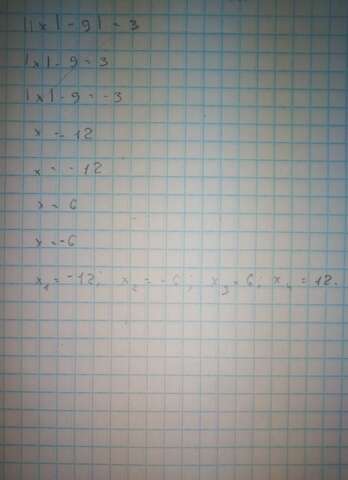 ||x|-9|=3
|x|-9=3
|x|-9=-3
x=12
x=-12
x=6
x=-6
x₁=-12; x₂=-6; x₃=6; x₄=12.